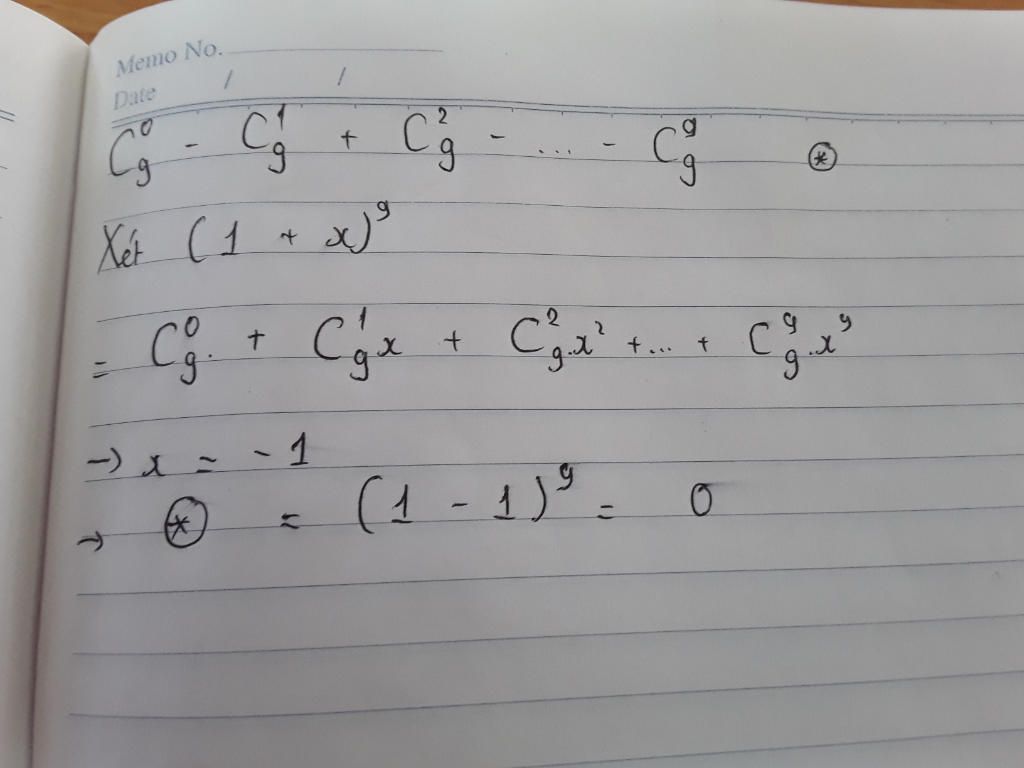 Memo No.
Date / /
C₉⁰ - C₉¹ + C₉² - ... - C₉⁹ ⊛
Xét (1 + x)⁹
= C₉⁰. + C₉¹x + C₉².x² + ... + C₉⁹.x⁹
→ x = -1
→ ⊛ = (1 - 1)⁹ = 0